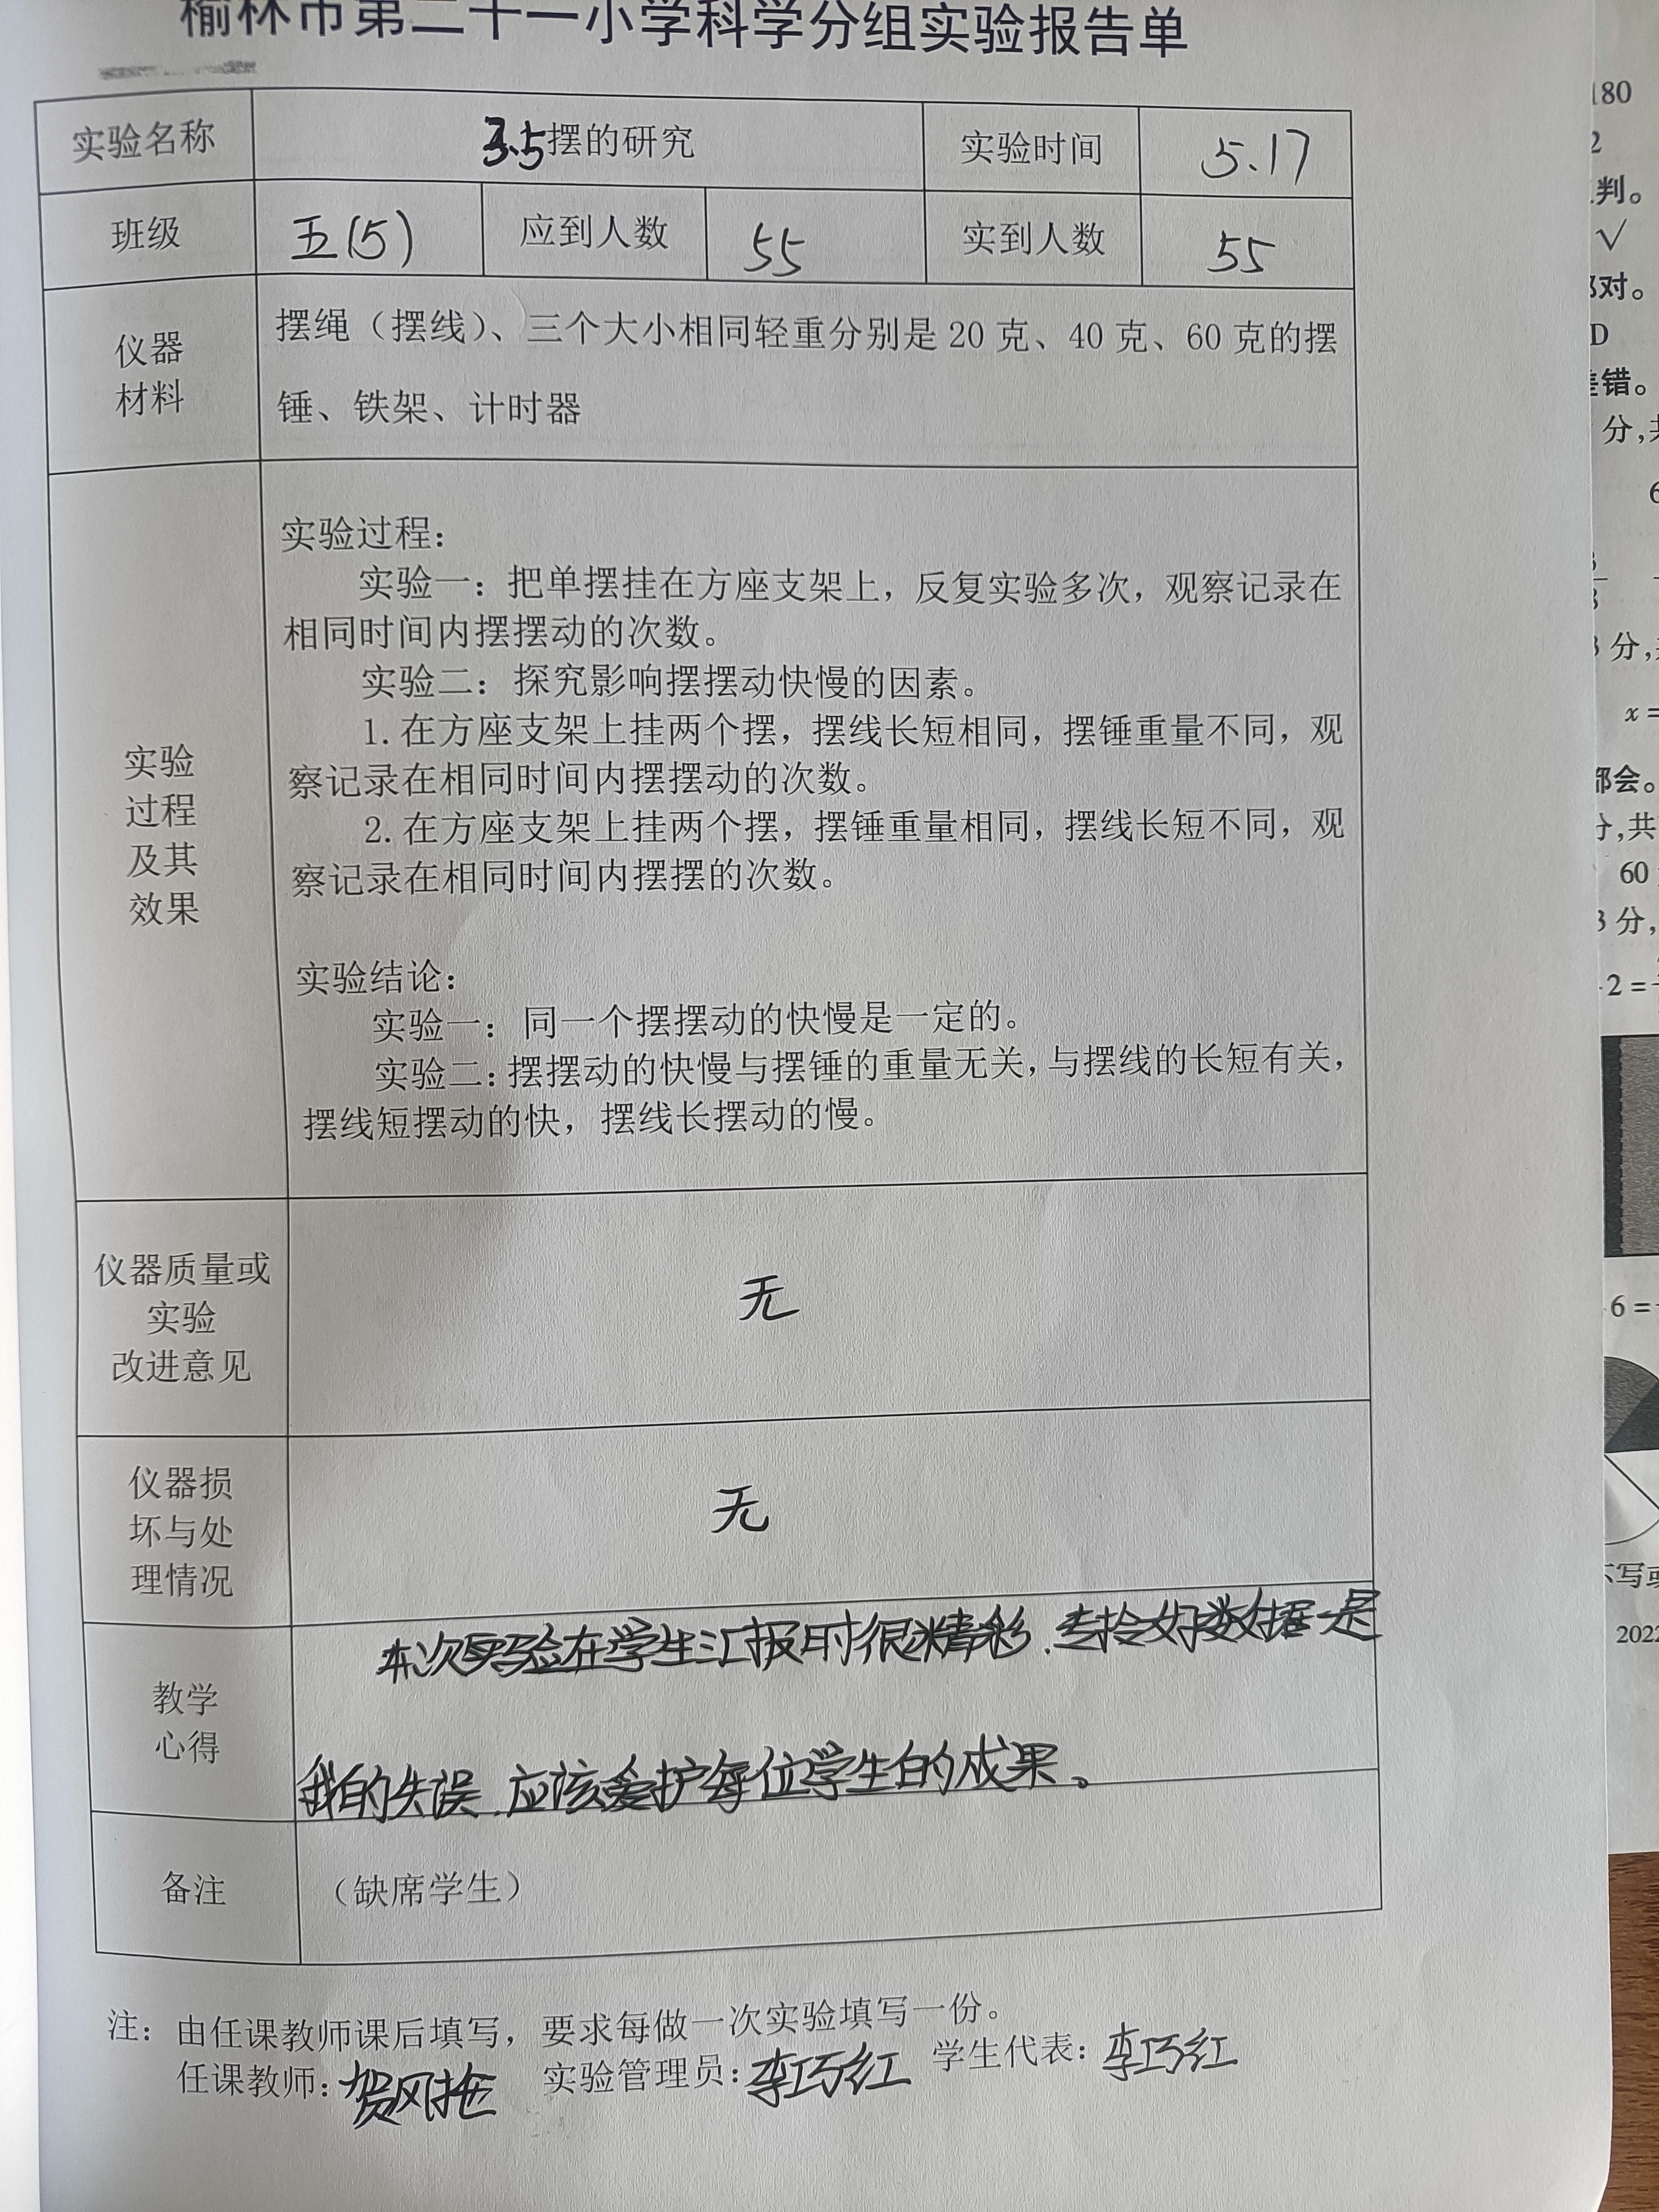 榆林市第二十一小学科学分组实验报告单
实验名称 3.5摆的研究 实验时间 5.17
班级 五(5) 应到人数 55 实到人数 55
仪器
材料
摆绳（摆线）、三个大小相同轻重分别是 20 克、40 克、60 克的摆
锤、铁架、计时器
实验
过程
及其
效果
实验过程：
实验一：把单摆挂在方座支架上，反复实验多次，观察记录在
相同时间内摆摆动的次数。
实验二：探究影响摆摆动快慢的因素。
1.在方座支架上挂两个摆，摆线长短相同，摆锤重量不同，观
察记录在相同时间内摆摆动的次数。
2.在方座支架上挂两个摆，摆锤重量相同，摆线长短不同，观
察记录在相同时间内摆摆的次数。
实验结论：
实验一：同一个摆摆动的快慢是一定的。
实验二：摆摆动的快慢与摆锤的重量无关，与摆线的长短有关，
摆线短摆动的快，摆线长摆动的慢。
仪器质量或
实验
改进意见
无
仪器损
坏与处
理情况
无
教学
心得
本次实验在学生汇报时很精彩.专拾好数据是
我的失误.应该爱护每位学生的成果。
备注
（缺席学生）
注：由任课教师课后填写，要求每做一次实验填写一份。
任课教师：贺风 实验管理员：李巧红 学生代表：李巧红
180
2
判。
√
都对。
D
差错。
分,共
6
3
8
3 分,
x=
都会。
分,共
60
3 分,
2=
6=
不写或
2022